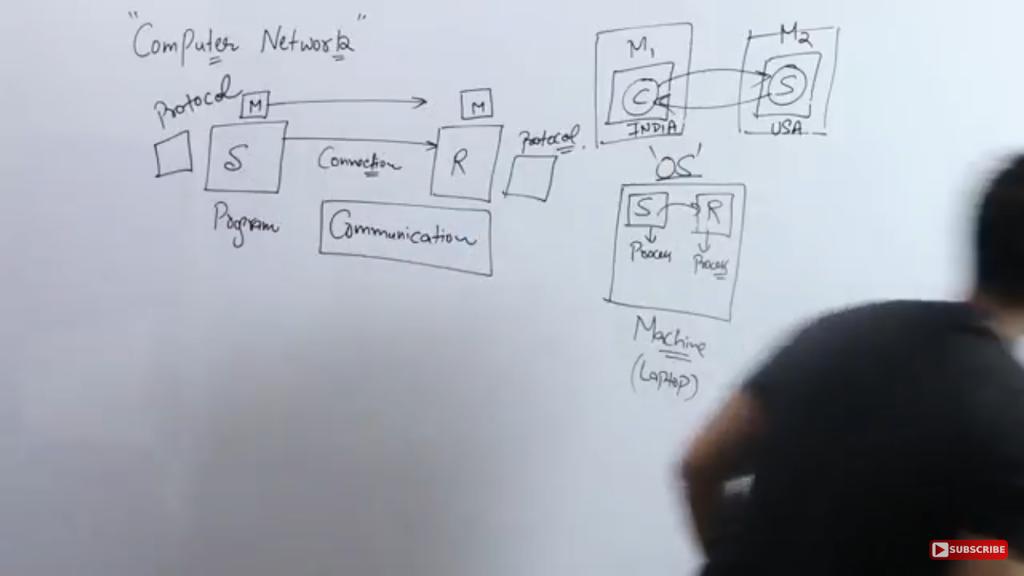 "Computer Network"
Protocol
M
M
S
Connection
R
Protocol.
Program
Communication
M1
M2
C
S
INDIA
USA
'OS'
S
R
Process
Process
Machine
(Laptop)
SUBSCRIBE